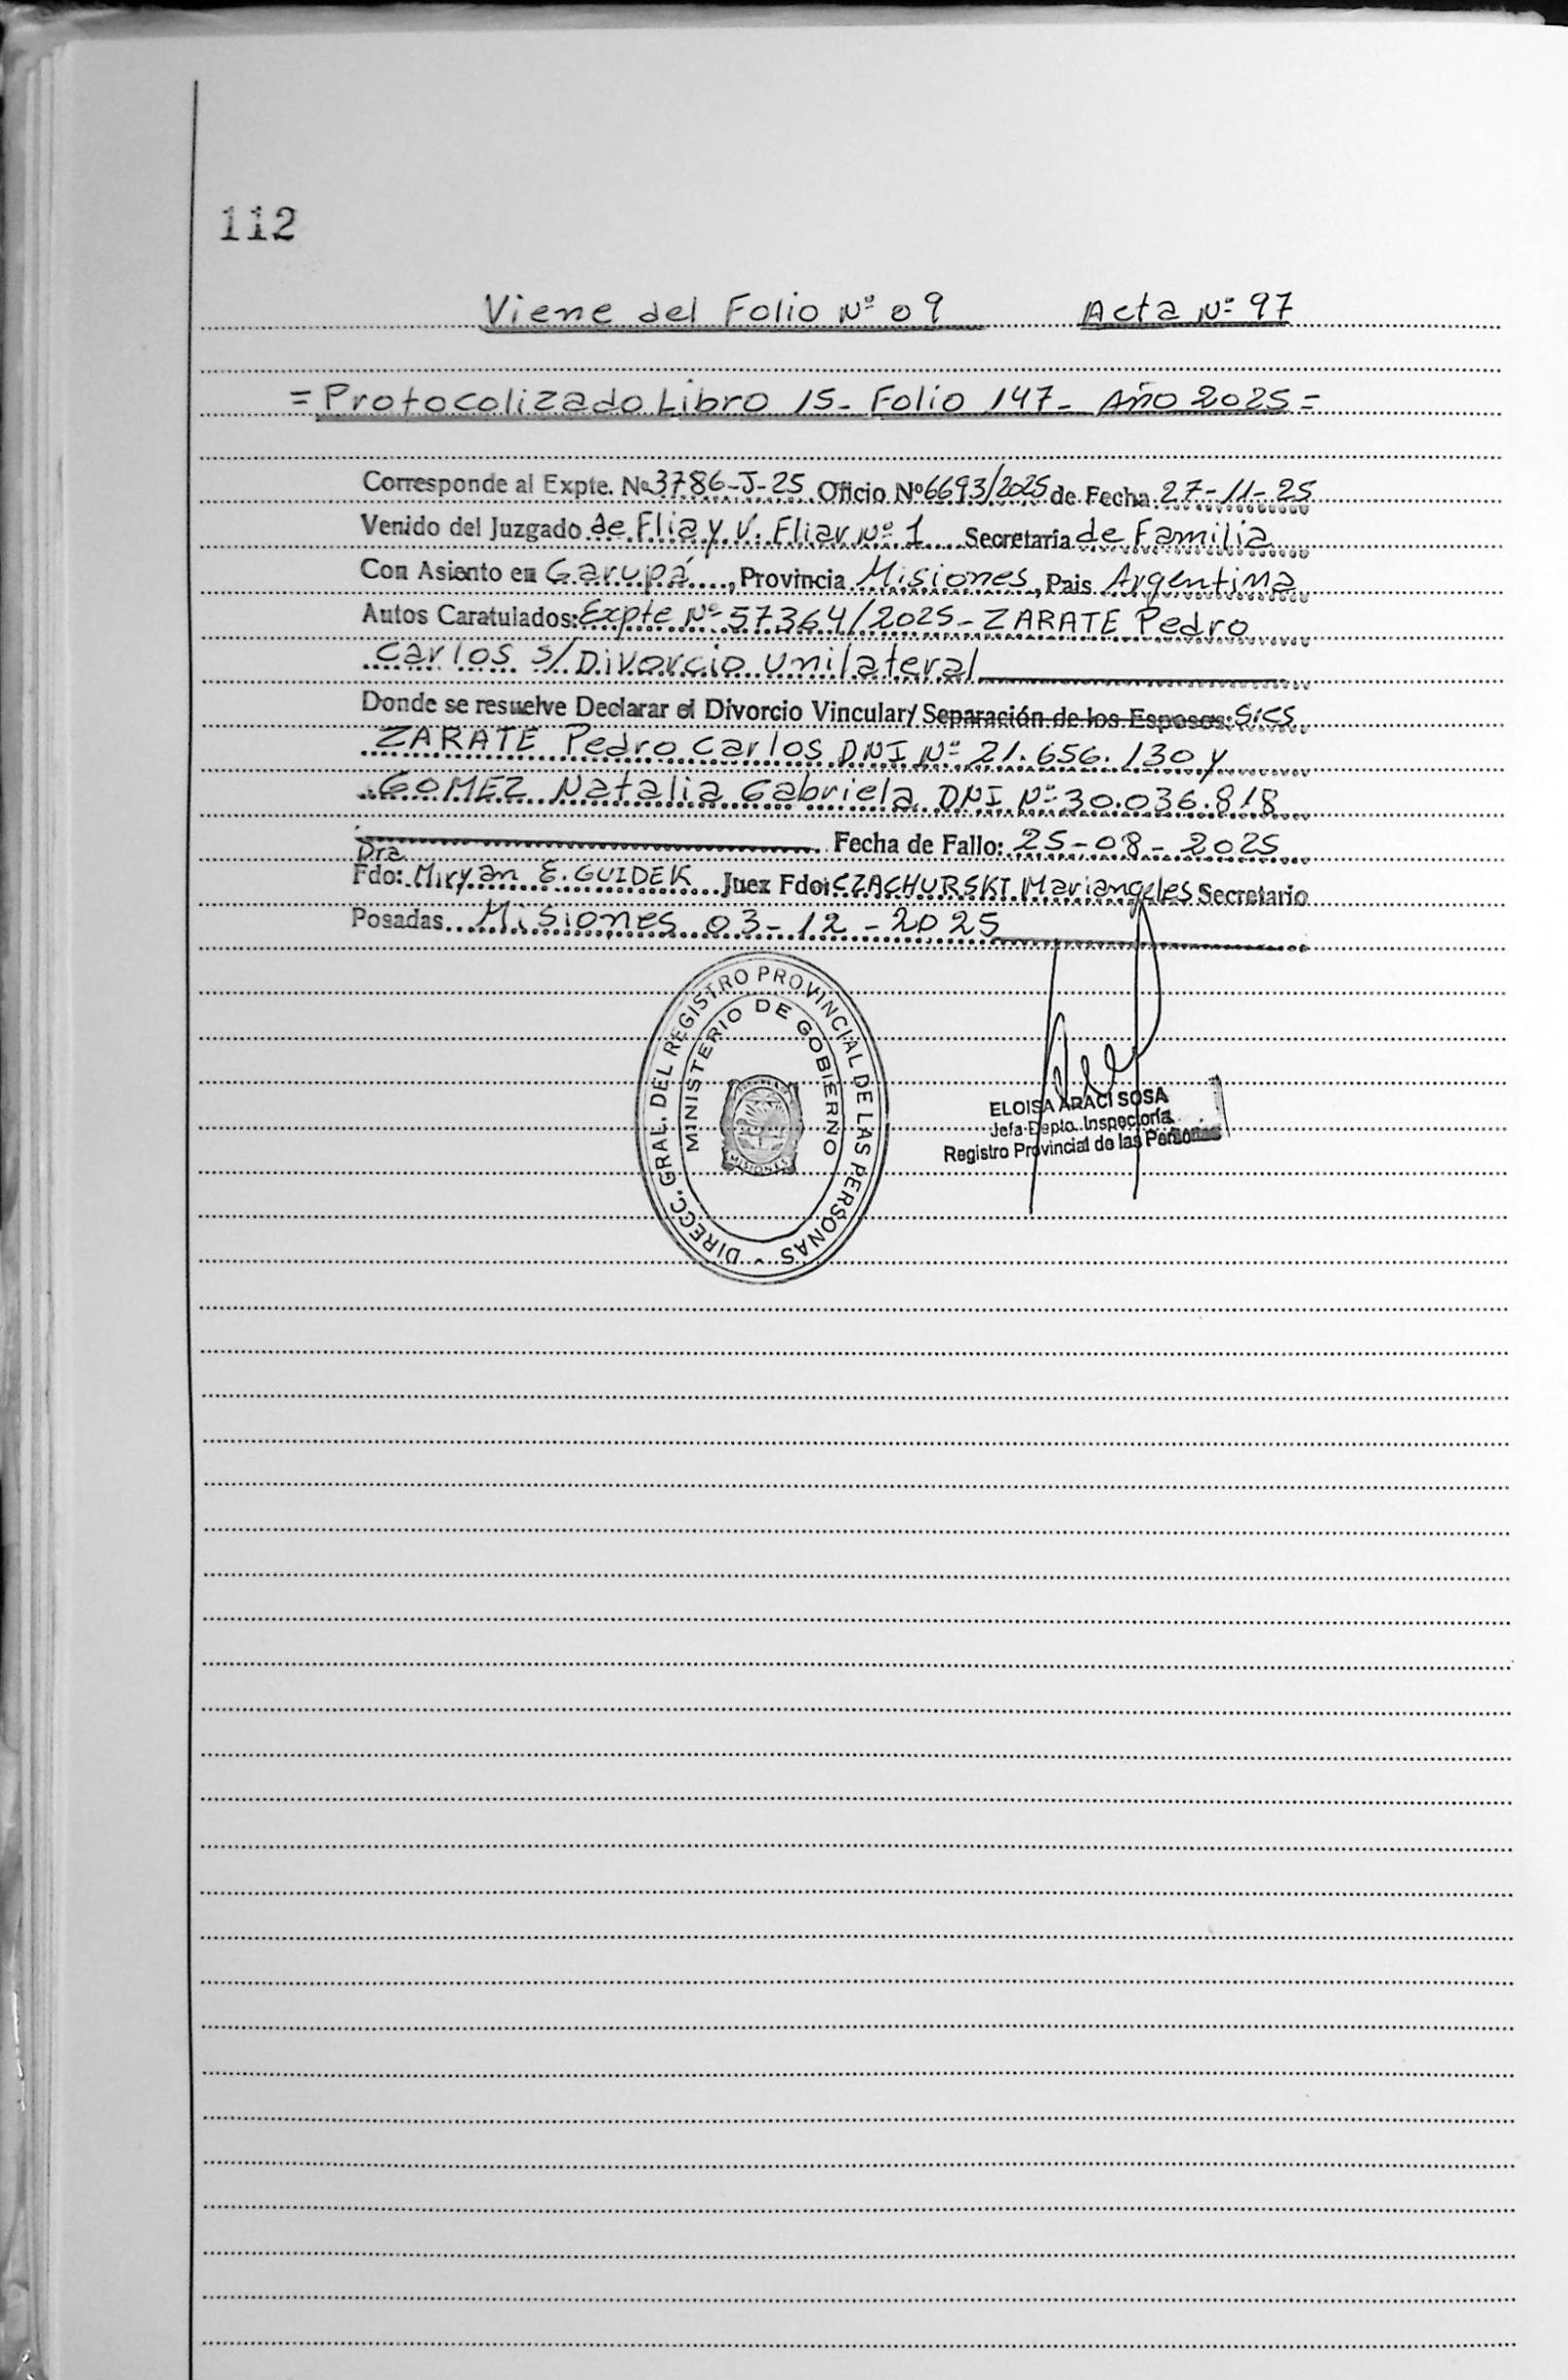 112
Viene del Folio Nº 09 Acta Nº 97
= Protocolizado Libro 15- Folio 147- Año 2025 =
Corresponde al Expte. Nº 3786-J-25 Oficio Nº 6693/2025 de Fecha 27-11-25
Venido del Juzgado de Flia y V. Fliar Nº 1 Secretaria de Familia
Con Asiento en Garupá, Provincia Misiones, Pais Argentina
Autos Caratulados: Expte Nº 57364/2025- ZARATE Pedro
Carlos s/Divorcio Unilateral
Donde se resuelve Declarar el Divorcio Vincular/ Separación de los Esposos: Sres
ZARATE Pedro Carlos DNI Nº 21.656.130 y
GOMEZ Natalia Gabriela DNI Nº 30.036.818
Fecha de Fallo: 25-08-2025
Dra
Fdo: Miryan E. GUIDEK Juez Fdo: CZACHURSKI Mariangeles Secretario
Posadas Misiones 03-12-2025
DIRECC. GRAL. DEL REGISTRO PROVINCIAL DE LAS PERSONAS
MINISTERIO DE GOBIERNO
MISIONES
ELOISA ARACI SOSA
Jefa Depto. Inspectoría
Registro Provincial de las Personas